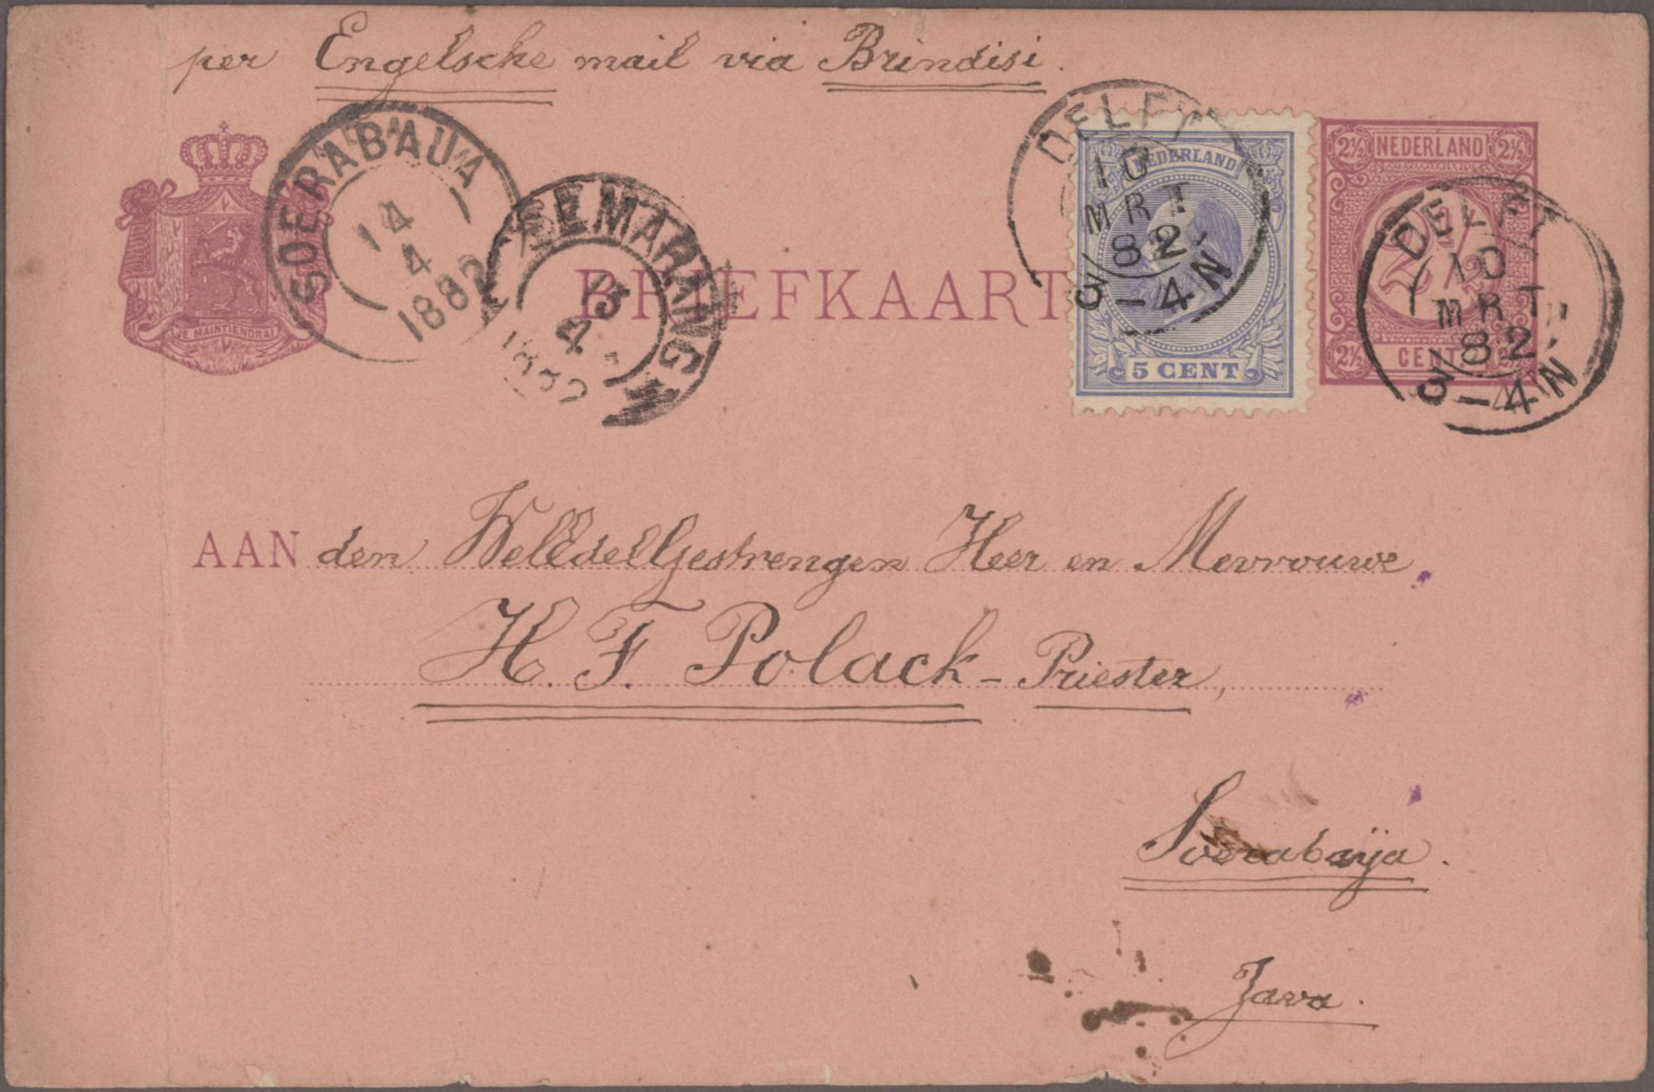 per Engelsche mail via Brindisi.
SOERABAIJA
14
4
1882
SEMARANG
13
4
1882
JE MAINTIENDRAI
BRIEFKAART
DELFT
10
MRT
82
3-4N
NEDERLAND
5 CENT
2½ NEDERLAND 2½
2½
2½ CENT 2½
DELFT
10
MRT
82
3-4N
AAN den WelEdelGestrengen Heer en Mevrouwe
H. F. Polack - Priester,
Soerabaija.
Java.